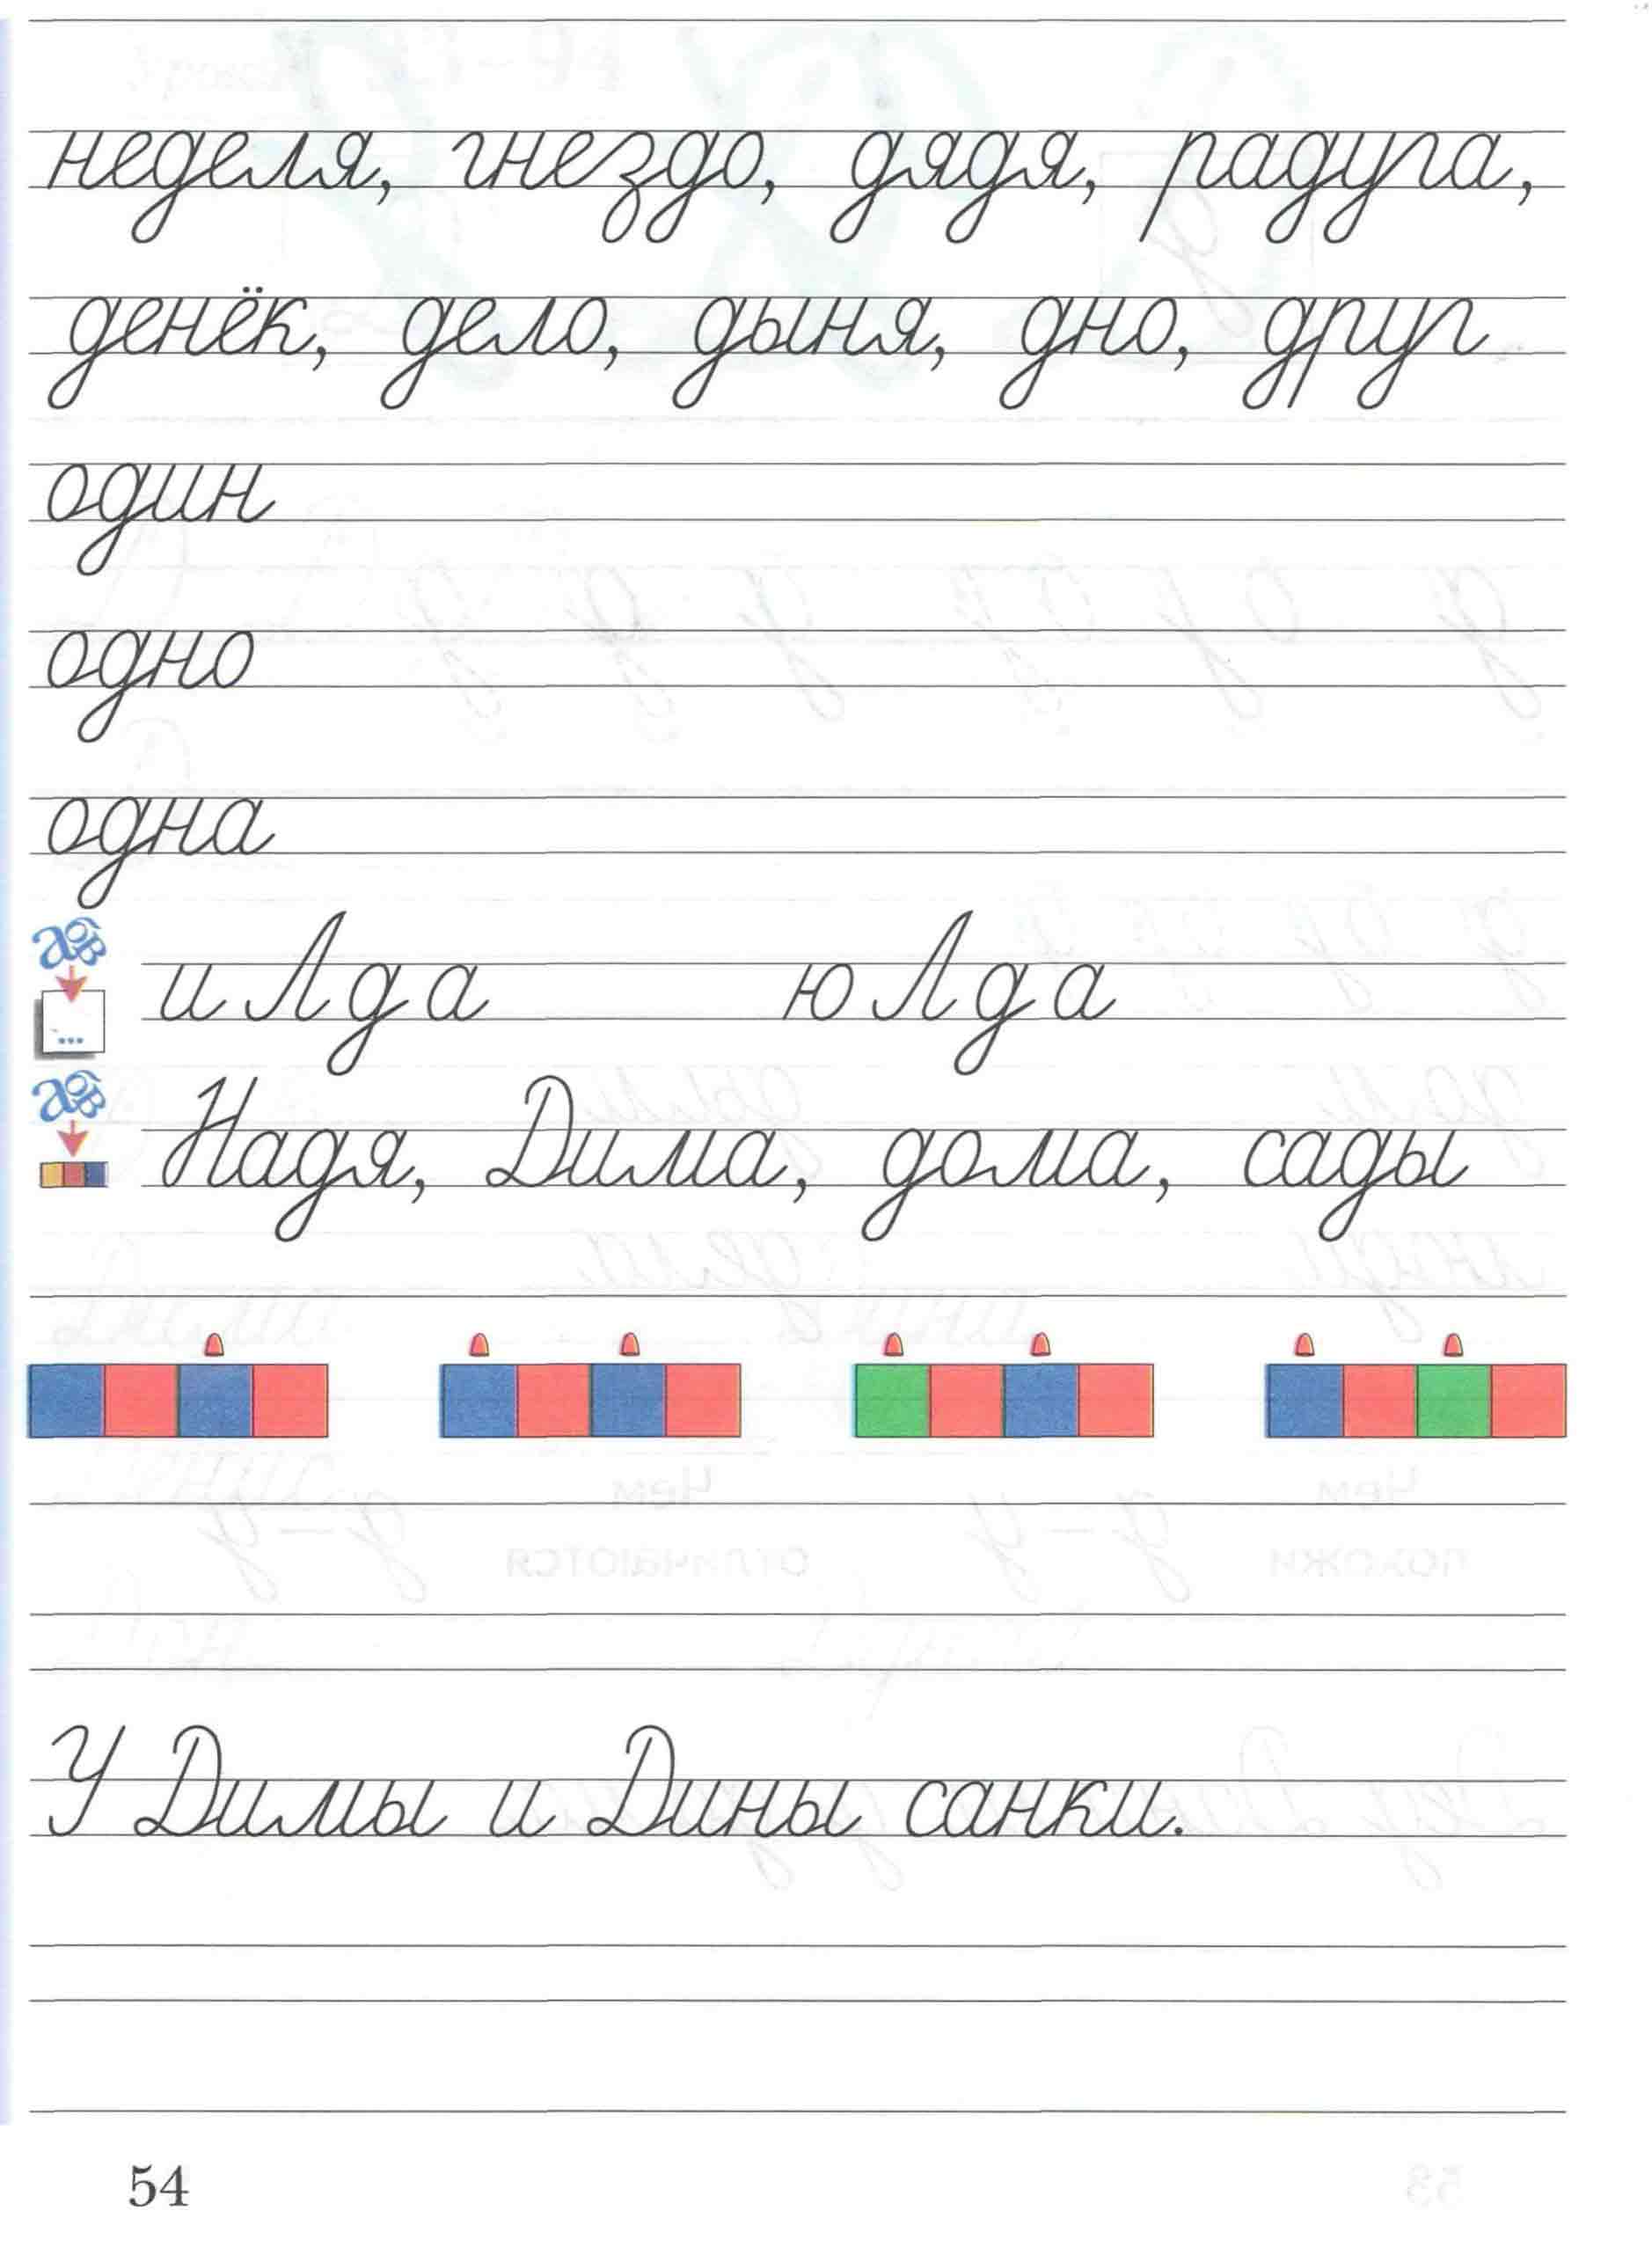 неделя, гнездо, дядя, радуга,
денёк, дело, дыня, дно, друг
один
одно
одна
и Л д а ю Л д а
Надя, Дима, дома, сады
У Димы и Дины санки.
54